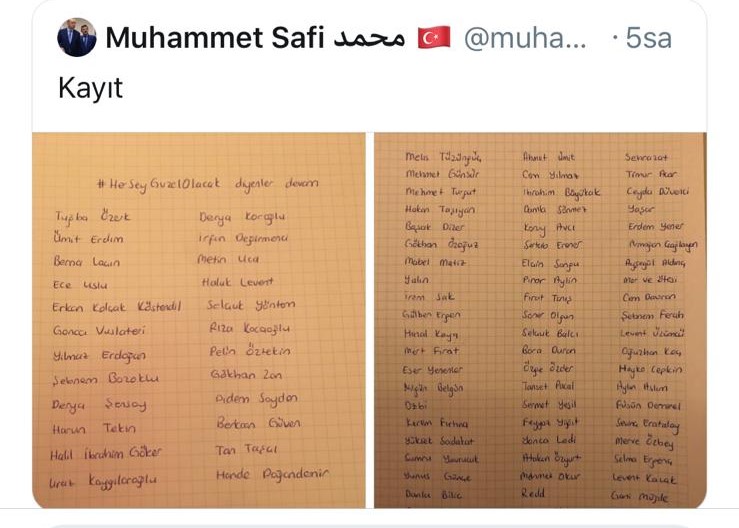 Muhammet Safi محمد 🇹🇷 @muha... · 5sa
Kayıt
#HerŞeyGüzelOlacak diyenler devam
Tuğba Özerk
Ümit Erdim
Berna Laçin
Ece Uslu
Erkan Kolçak Köstendil
Gonca Vuslateri
Yılmaz Erdoğan
Şebnem Bozoklu
Derya Şensoy
Harun Tekin
Halil İbrahim Göker
Uraz Kaygılaroğlu
Derya Köroğlu
İrfan Değirmenci
Metin Uca
Haluk Levent
Selçuk Yöntem
Rıza Kocaoğlu
Pelin Öztekin
Gökhan Zan
Didem Soydan
Berkcan Güven
Tan Taşçı
Hande Doğandemir
Melis Tüzüngüç
Mehmet Günsür
Mehmet Turgut
Hakan Taşıyan
Başak Dizer
Gökhan Özoğuz
Mabel Matiz
Yalın
İrem Sak
Gülben Ergen
Hazal Kaya
Mert Fırat
Eser Yenenler
Belgün
Ozbi
Kerem Fırtına
Yüksek Sadakat
Cemre
Yunus Günçe
Danla Bilic
Ahmet Ümit
Cem Yılmaz
İbrahim Büyükak
Damla Sönmez
Koray Avcı
Sertab Erener
Elçin Sangu
Pınar Aylin
Fırat Tanış
Soner Olgun
Selçuk Balcı
Bora Duran
Özge Özder
Tanset
Sermet Yeşil
Feyyaz Yiğit
Yonca Lodi
Atakan Özyurt
Mahmet Okur
Redd
Şehrazat
Timur Acar
Ceyda Düvenci
Yaşar
Erdem Yener
Armağan Çağlayan
Ayşegül Aldinç
Mor ve Ötesi
Can Bonomo
Şebnem Ferah
Levent Üzümcü
Oğuzhan Koç
Hayko Cepkin
Aylin Aslım
Füsun Demirel
Sevinç Erbulak
Merve Özbey
Selma Ergeç
Levent Kazak
Gani Müjde